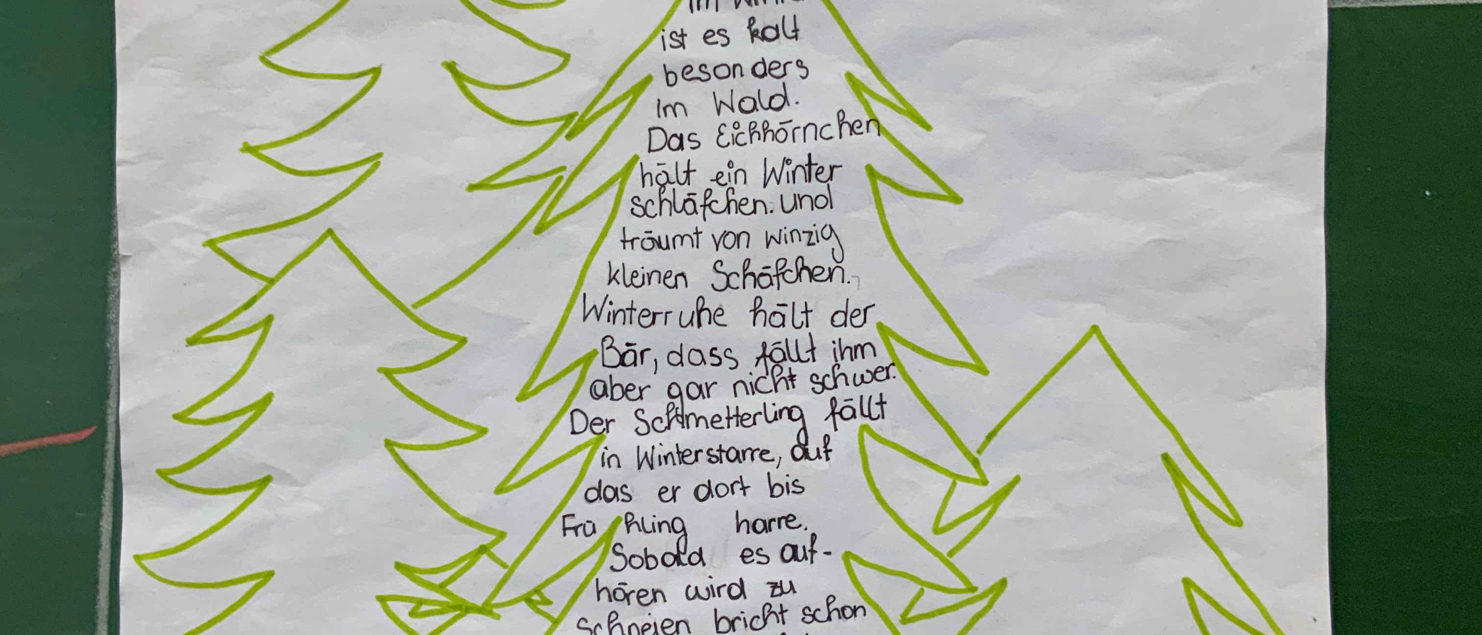 ist es kalt
besonders
im Wald.
Das Eichhörnchen
hält ein Winter
schläfchen. und
träumt von winzig
kleinen Schäfchen.
Winterruhe hält der
Bär, dass fällt ihm
aber gar nicht schwer.
Der Schmetterling fällt
in Winterstarre, auf
das er dort bis
Frühling harre.
Sobald es auf-
hören wird zu
schneien bricht schon